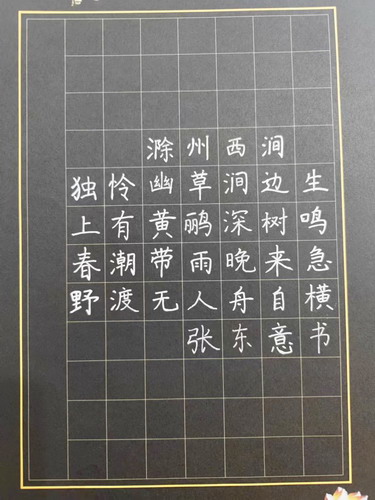 滁州西涧
独怜幽草涧边生
上有黄鹂深树鸣
春潮带雨晚来急
野渡无人舟自横
张东意书